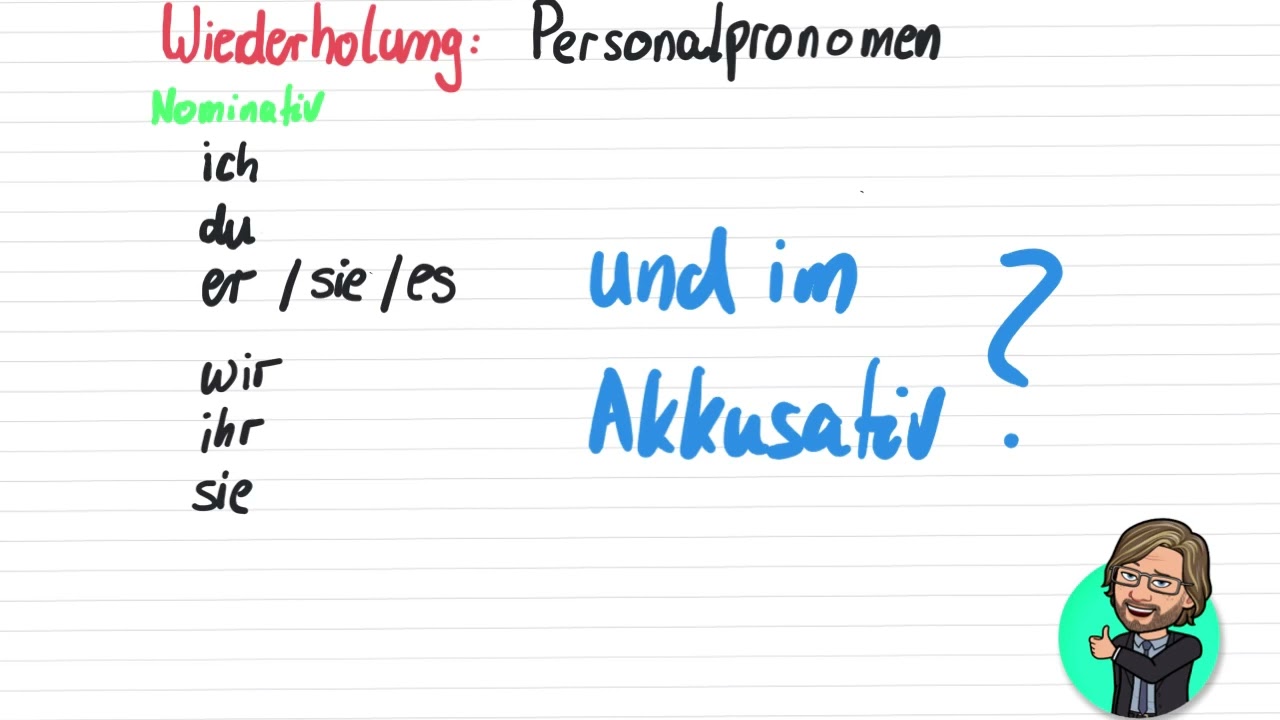 Wiederholung: Personalpronomen
Nominativ
ich
du
er / sie / es
wir
ihr
sie
und im
Akkusativ ?